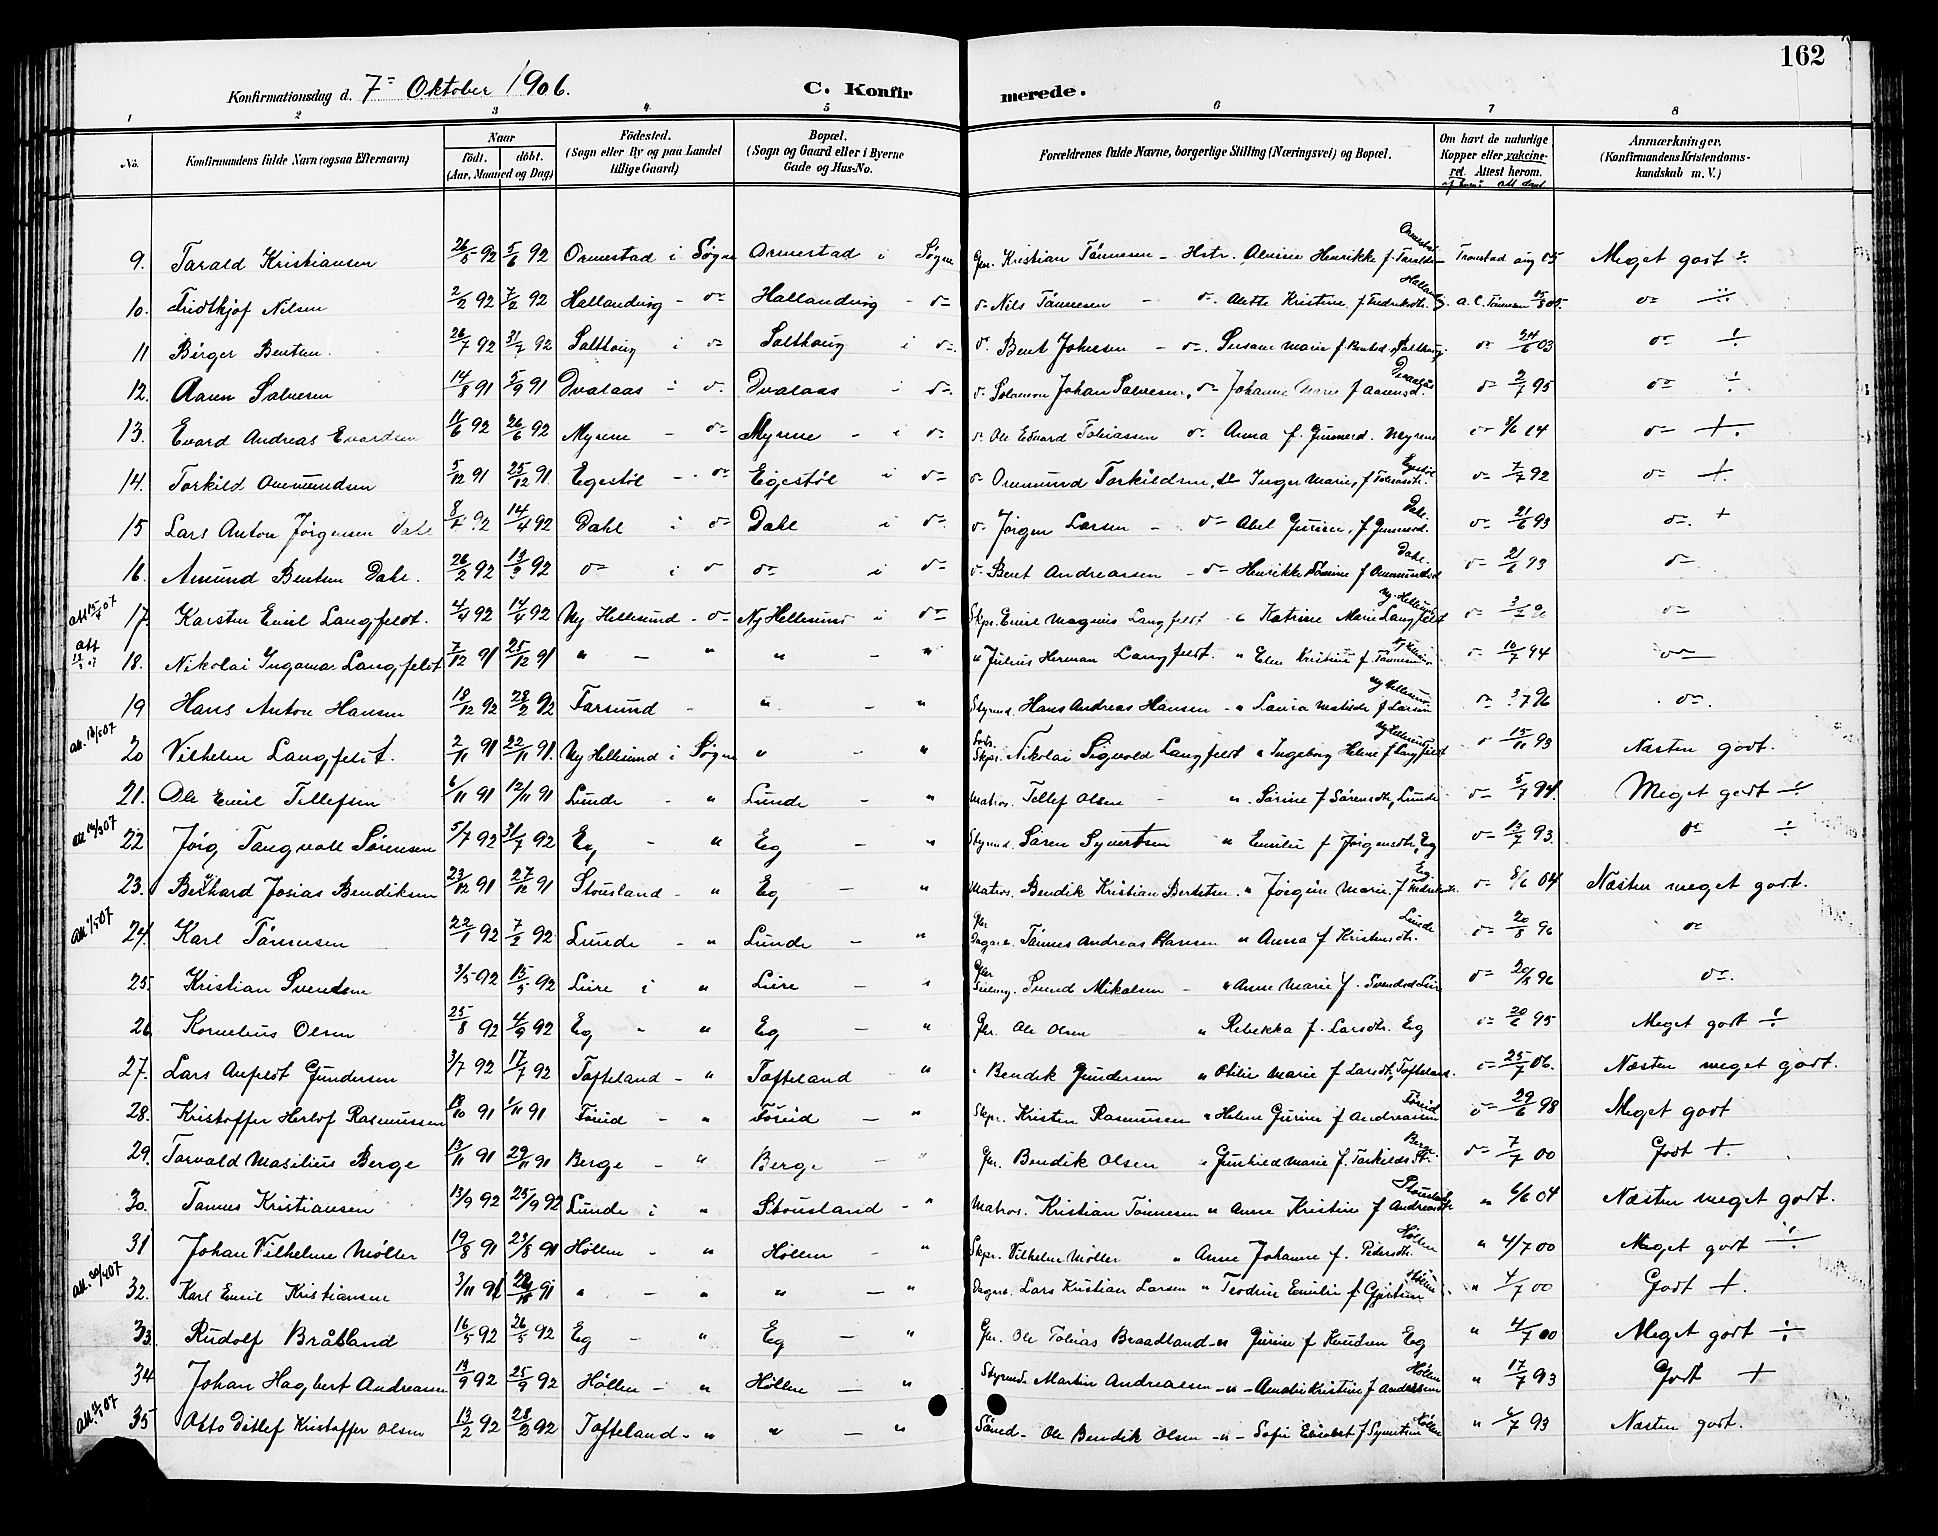 162
Konfirmationsdag d. 7= Oktober 1906. C. Konfirmerede.
1 2 3 4 5 6 7 8
No. Konfirmandens fulde Navn (ogsaa Efternavn) Naar födt. döbt. (Aar, Maaned og Dag) Födested. (Sogn eller By og paa Landet tillige Gaard) Bopæl. (Sogn og Gaard eller i Byerne Gade og Hus-No. Forældrenes fulde Navne, borgerlige Stilling (Næringsvei) og Bopæl. Om havt de naturlige Kopper eller vakcineret. Attest herom. Anmærkninger. (Konfirmandens Kristendomskundskab m. V.)
9. Tarald Kristiansen 26/5 92 5/6 92 Ormestad i Søgne Ormestad i Søgne Gbr. Kristian Tönnesen - Hstr. Henrikke f. Ormestad Tronstad aug 05 Meget godt ÷
10. Fridthjof Nilsen 2/2 92 7/2 92 Hallandvig - do Hallandvig - do do Nils Tönnesen - do. Alette Kristine f. Fredriksdtr. A. C. Tönnesen 15/8 05. do ÷
11 Birger Bentsen. 26/7 92 31/7 92 Salthaug i do Salthaug i do. do. Bent Johnsen - do. Susane Marie f. Bentsd. Salthaug do 24/6 03 do ÷
12. Aanen Salvesen 14/8 91 5/9 91 Dvalaas i do. Dvalaas i do. do Salamon Johan Salvesen, do Johanne Marie f Aanensd. Dvalaas do 2/7 95 do ÷
13. Evard Andreas Evardsen 11/6 92 26/6 92 Myrene - do Myrene - i do do. Ole Edvard Tobiassen do Anna f. Gunnersd. Myrene do 9/6 04 do +.
14. Torkild Ommundsen 5/12 91 25/12 91 Egestöl - do Eigestöl i do do Ommund Torkildsen, do Inger Marie, f Tobiasdtr. Egestöl do 7/7 92 do +
15 Lars Anton Jørgensen Dale 14/4 92 Dahl i do Dahl i do. do. Jörgen Larsen - do Abel Gurine, f Gunnersd. Dale do 21/6 93 do. +
16. Amund Bentsen Dahl. 26/2 92 92 do i do do i do do Bent Andreassen - do Henrikke Tomine f Ommundsd Dahl do 21/6 93 do
att 15/4 07 17. Karsten Emil Langfeldt. 4/4 92 14/4 92 Ny Hellesund - do Ny Hellesund i do Skpr. Emil Magnus Langfeldt " Katrine Marie Langfeldt Ny Hellesund do do
att 18. Nikolai Ingemar Langfeldt 7/12 91 25/12 91 " - " " - " " Julius Herman Langfeldt. " Elen Kristine f. Tönnesen do 10/7 94 do
19 Hans Anton Hansen 18/12 92 28/2 92 Farsund - " - " Styrmd. Hans Andreas Hansen - " Laura Matilde f Larsen Ny Hellesund do 3/7 96 do.
att. 07 20 Vilhelm Langfeldt. 2/11 91 22/11 91. Ny Hellesund i Søgne " - " Lods. Skpr. Nikolai Sigvold Langfeldt " Ingeborg Helene f Langfeldt Ny Hellesund do 15/11 93 Næsten godt.
21. Ole Emil Tellefsen 6/11 91 12/11 91 Lunde - " Lunde - " Matros. Tellef Olsen - " Sörine f Sörensdtr, Lunde do 5/7 94. Meget godt ÷
att 14/3 07 22 Jörg Tangvall Sörensen 5/7 92 31/7 92 Eg - " Eg - " Styrmd. Sören Syvertsen " Emilie f Jörgensdtr, Eg do 12/7 93. do ÷
23. Bernhard Josias Bendiksen 23/12 91 27/12 91 Stousland - " Eg - " Matros. Bendik Kristian Berntsen. " Jörgine Marie, f Fredriksdtr. Eg do 8/6 04 Næsten meget godt.
att 07 24. Karl Tönnesen 22/1 92 7/2 92 Lunde - " Lunde - " Gbr Dagarb. Tönnes Andreas Hansen " Anna f Kristensdtr. Lunde do 20/8 96 do
25. Kristian Svendsen 3/5 92 15/5 92 Leire i " Leire - " Gbr Svend Mikalsen - " Anne Marie f. Svendsd Leire do 20/8 96 do.
26 Kornelius Olsen 25/8 92 4/9 92 Eg " " Eg - " Gbr. Ole Olsen " Rebekka f. Larsdtr. Eg do 20/6 95 Meget godt ÷
27. Lars Anfeldt Gundersen 3/7 92 17/7 92 Tofteland - " Tofteland - " " Bendik Gundersen " Otelie Marie f Larsdtr, Tofteland. do 25/7 06. Næsten meget godt.
28. Kristoffer Herlof Rasmussen 18/10 91 1/11 91 Töreid - " Töreid - " Skpr. Kristen Rasmussen " Helene Gurine f Andreassen Töreid do 29/6 98 Meget godt
29. Torvald Masilius Berge 13/11 91 29/11 91 Berge - " Berge - " Gbr. Bendik Olsen " Gunhild Marie f. Torkildsdt. Berge do 7/7 00 Godt +.
30. Tønnes Kristiansen 13/9 92 25/9 92 Lunde i " Stousland - " Matros. Kristian Tönnesen " Anne Kristine f Andreasdtr Stousland " 6/6 04 Næsten meget godt.
31 Johan Vilhelm Möller 19/8 91 23/8 91 Höllen - " Höllen - " Skpr. Vilhelm Möller " Anne Johanne f. Pedersdtr. Höllen " 4/7 00 Meget godt ÷
att. 30/4 07 32. Karl Emil Kristiansen 3/11 91 22/11 91 " - " " - " Dagarb. Lars Kristian Larsen " Teodine Emilie f. Gjertsen Höllen " 4/7 00 Godt +.
33 Rudolf Bråtland 16/5 92 26/5 92 Eg - " Eg - " Gbr. Ole Tobias Braadland - " Gurine f Knudsen Eg " 4/7 00 Meget godt ÷
34 Johan Hagbert Andreassen 13/9 92 25/9 92 Höllen - " Höllen - " Styrmd. Martin Andreassen - " - Amalie Kristine f Andreassen Höllen " 17/7 93 Godt +
att 07 35 Otto Ditlef Kristoffer Olsen 13/2 92 28/2 92 Tofteland - " " - " Sömd - Ole Bendik Olsen - " - Sofie Elisabet f Syvertsen Höllen " 6/7 93 Næsten godt.